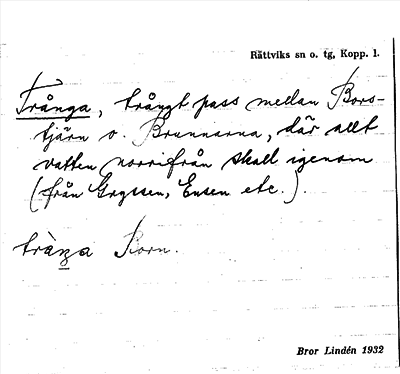 Rättviks sn o. tg, Kopp. 1.
Trånga, trångt pass mellan Bors-
tjärn o. Brunnarna, där allt
vatten norrifrån skall igenom
(från Gryssen, Ensen etc.).
Born.
Bror Lindén 1932